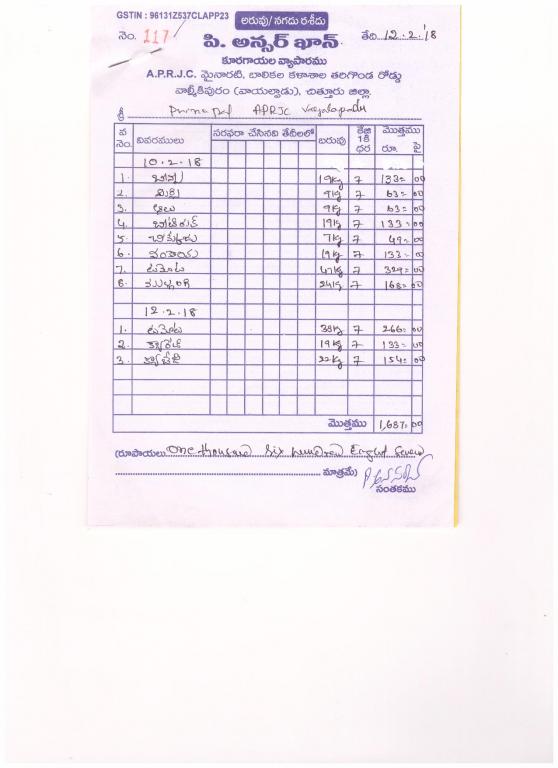 GSTIN : 96131Z537CLAPP23
అరువు/ నగదు రశీదు
నెం. 117
తేది 12.2.'18
పి. అన్సర్ ఖాన్
కూరగాయల వ్యాపారము
A.P.R.J.C. మైనారటి, బాలికల కళాశాల తరిగొండ రోడ్డు
వాల్మీకిపురం (వాయల్పాడు), చిత్తూరు జిల్లా.
శ్రీ APRJC
వ నెం. వివరములు సరఫరా చేసినవి తేదీలలో బరువు కేజి 1కి ధర మొత్తము రూ. పై
10.2.18
1. 19kg 7 133= 00
2. 9kg 7 63= 00
3. 9kg 7 63= 00
4. 19kg 7 133= 00
5. 7kg 7 49= 00
6. వంకాయ 19kg 7 133= 00
7. టమోట 47kg 7 329= 00
8. ముల్లంగి 24kg 7 168= 00
12.2.18
1. టమోట 38kg 7 266= 00
2. క్యారెట్ 19kg 7 133= 00
3. 22kg 7 154= 00
మొత్తము 1,687= 00
(రూపాయలు One thousand Six hundred Eighty Seven
మాత్రమే)
సంతకము